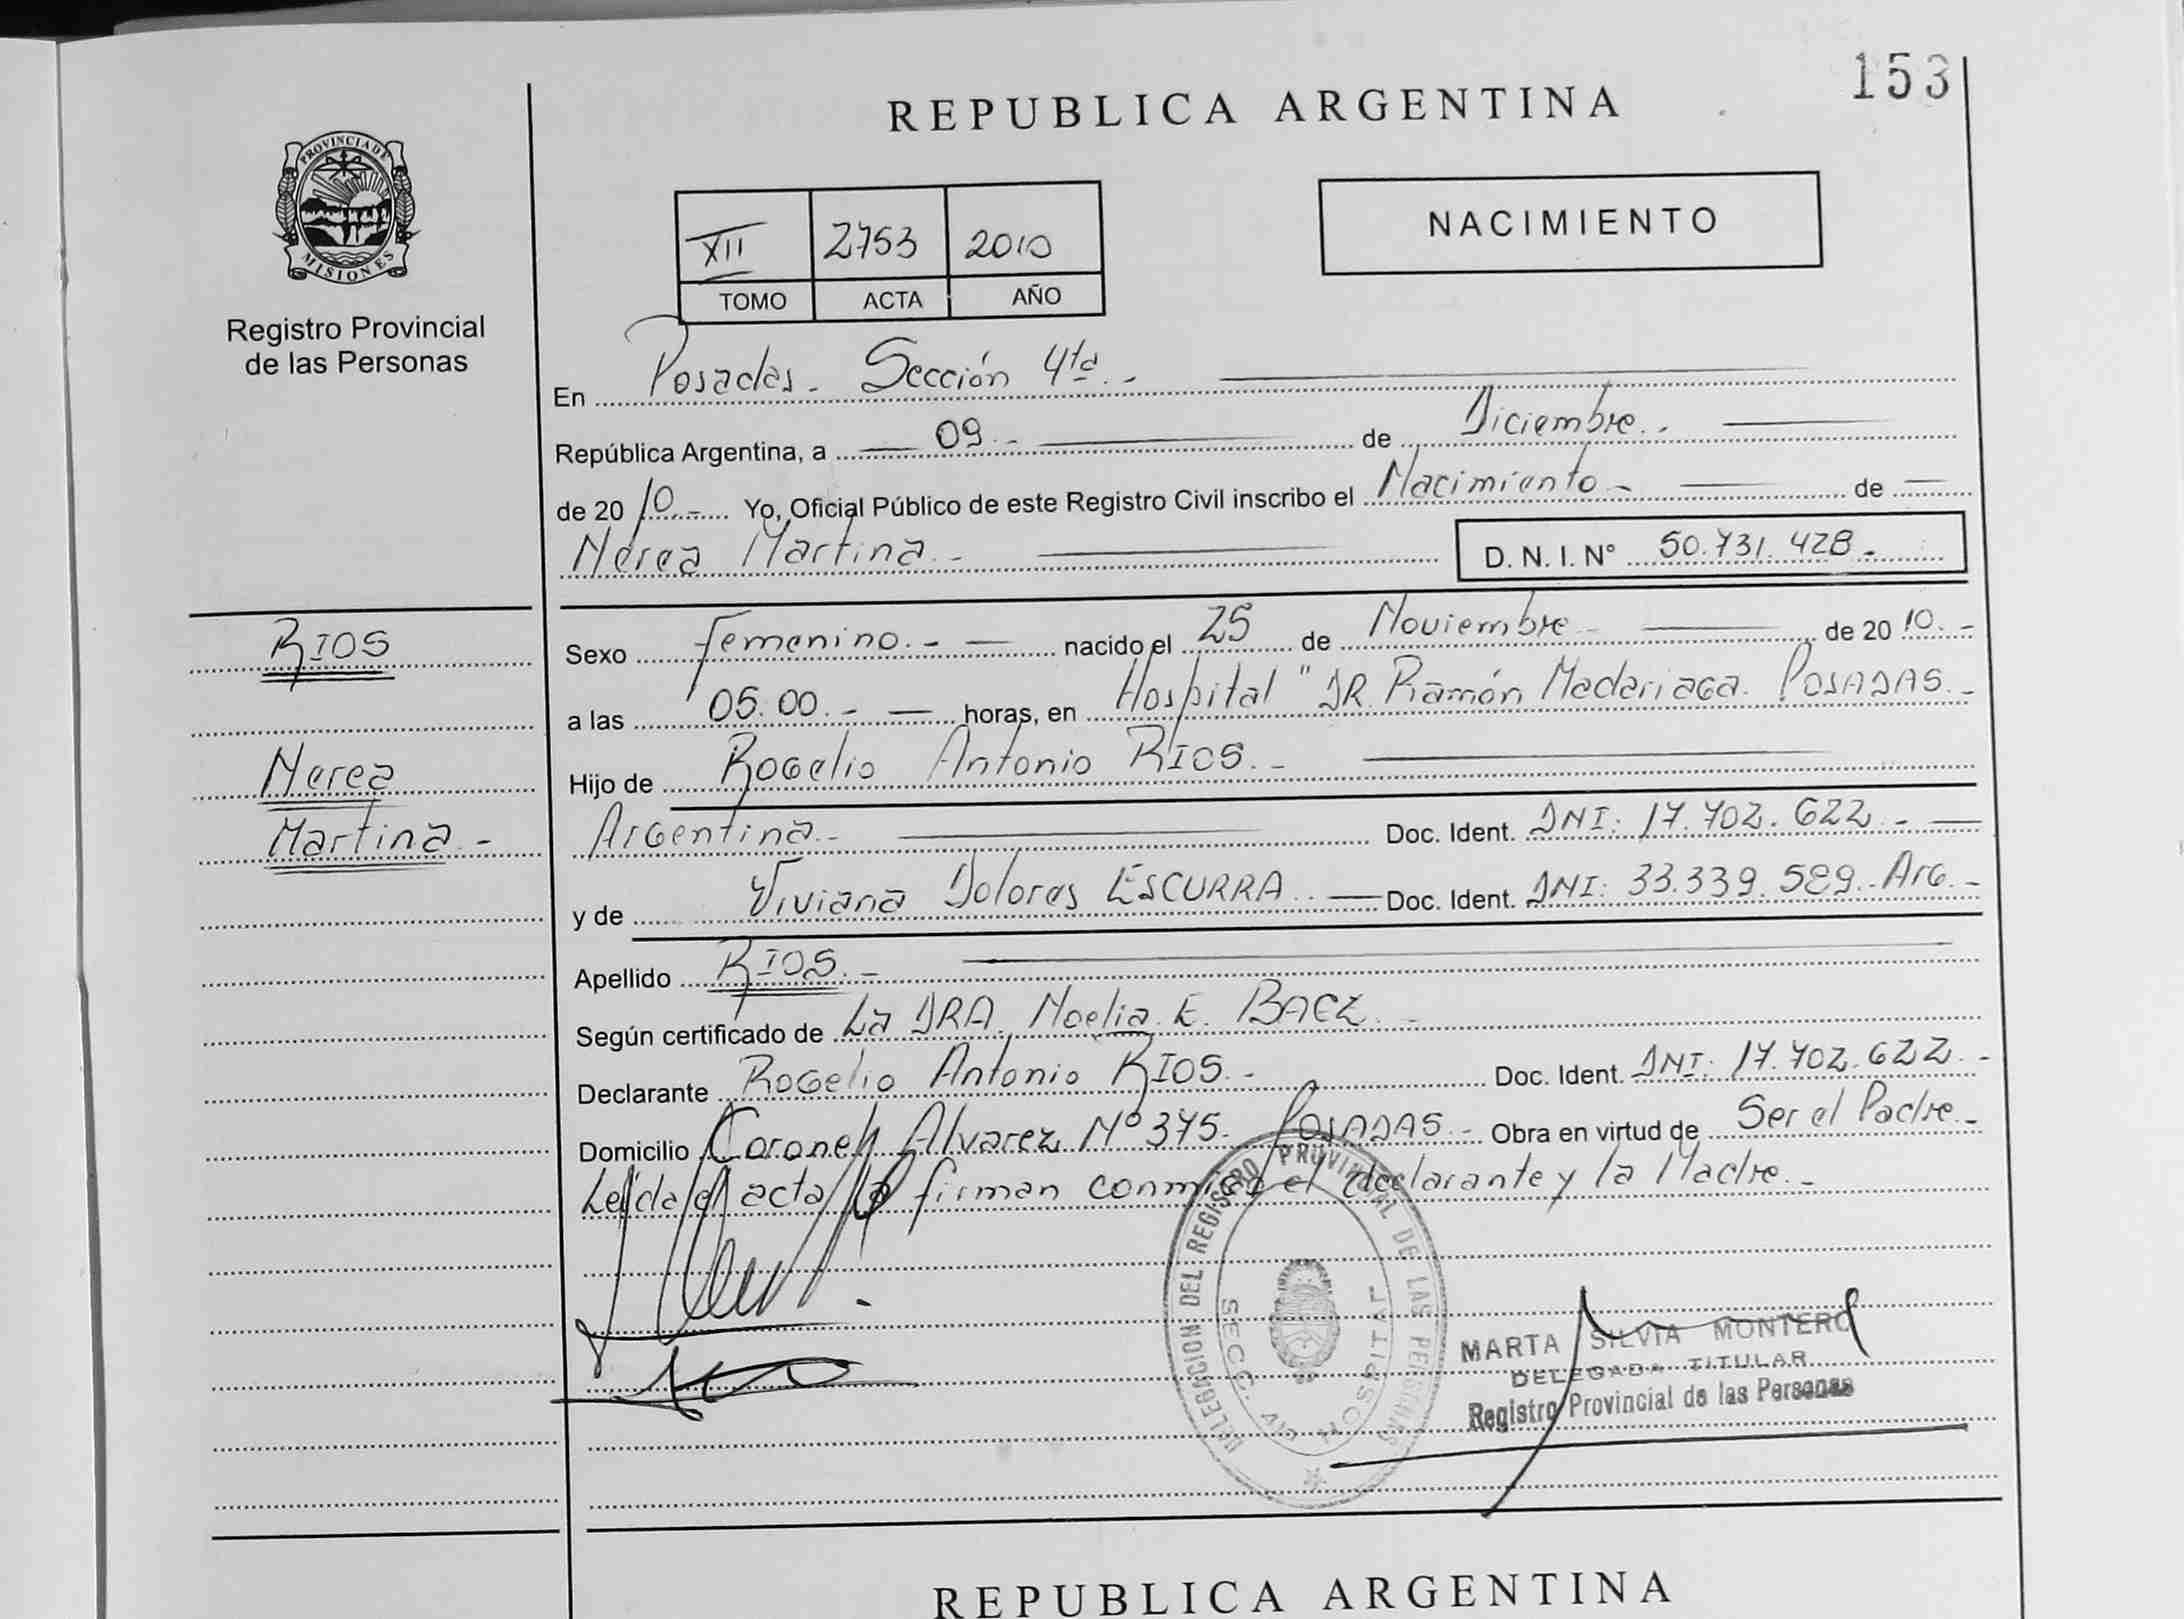 153
REPUBLICA ARGENTINA
PROVINCIA DE
MISIONES
Registro Provincial
de las Personas
XII 2753 2010
TOMO ACTA AÑO
NACIMIENTO
En Posadas - Sección 4ta.-
República Argentina, a 09.- de Diciembre.-
de 2010.- Yo, Oficial Público de este Registro Civil inscribo el Nacimiento - de
Nerea Martina.- D. N. I. N° 50.731.428.-
RIOS
Nerea
Martina.-
Sexo femenino.- nacido el 25 de Noviembre - de 2010.-
a las 05.00.- horas, en Hospital "DR. Ramón Madariaga. POSADAS.-
Hijo de Rogelio Antonio RIOS.-
Argentina.- Doc. Ident. DNI: 17.702.622.-
y de Viviana Dolores ESCURRA.- Doc. Ident. DNI: 33.339.529.- Arg.-
Apellido RIOS.-
Según certificado de La DRA. Noelia E. BAEZ.-
Declarante Rogelio Antonio RIOS.- Doc. Ident. DNI: 17.702.622.-
Domicilio Coronel Alvarez N° 375. POSADAS.- Obra en virtud de Ser el Padre.-
Leída el acta la firman conmigo el declarante y la Madre.-
DELEGACION DEL REGISTRO PROVINCIAL DE LAS PERSONAS
SECC. HOSPITAL
MARTA SILVIA MONTERO
DELEGADA TITULAR
Registro Provincial de las Personas
REPUBLICA ARGENTINA